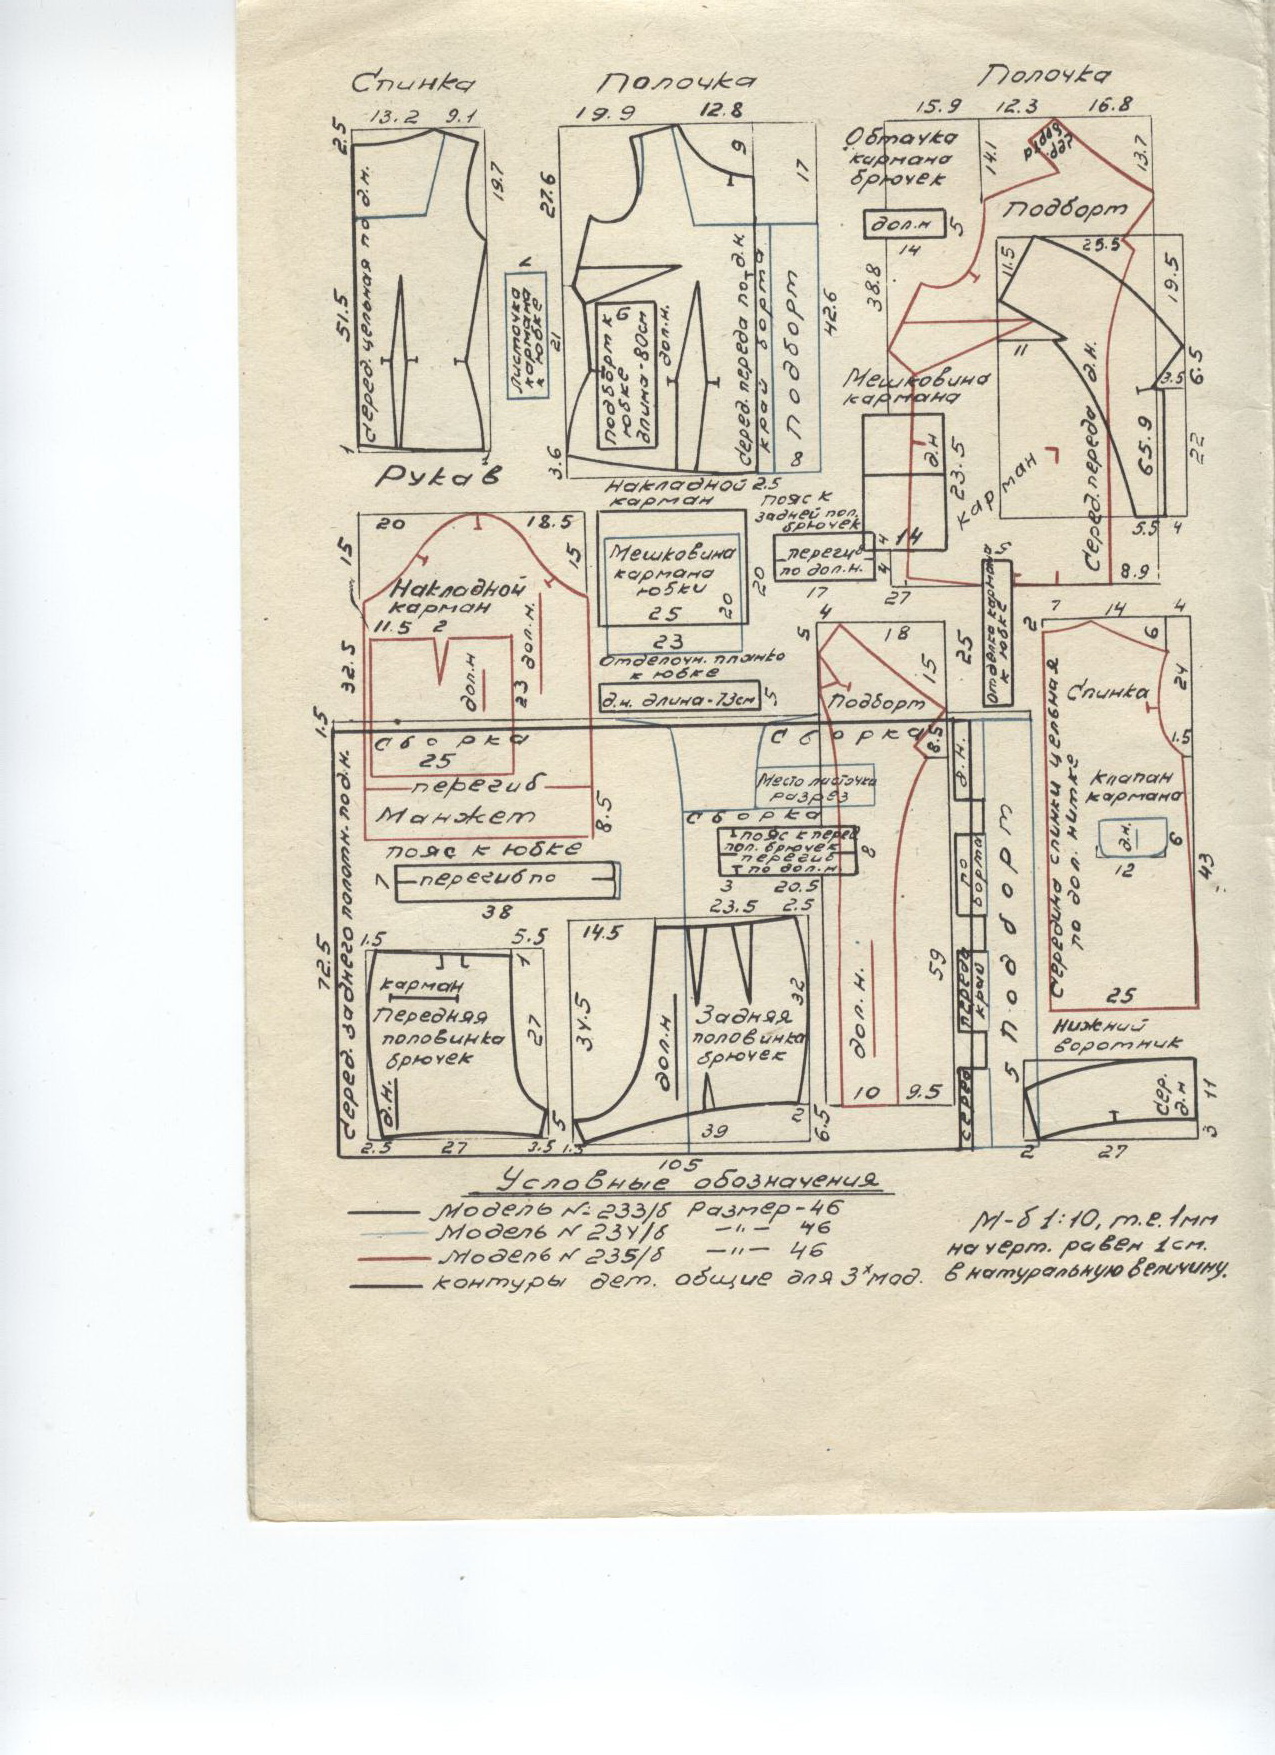 Спинка
13.2 9.1
2.5
19.7
51.5
серед. цельная по д.н.
1
Полочка
19.9 12.8
27.6
9
17
21
3.6
42.6
Листочка
кармана
к юбке
подборт к
юбке
длина-80см
6
дол.н.
серед. переда по д.н.
край борта
подборт
8
2.5
Полочка
15.9 12.3 16.8
Обтачка
кармана
брючек
14.1
сер.
борта
13.7
дол.н
5
14
Подборт
38.8
11.5
25.5
19.5
11
3.5
6.5
65.9
22
5.5 4
Мешковина
кармана
д.н
23.5
14
карман
серед. переда д.н.
27
8.9
Рукав
20 18.5
15
15
32.5
Накладной
карман
11.5 2
дол.н
23
дол.н.
сборка
25
перегиб
Манжет
8.5
Накладной
карман
Мешковина
кармана
юбки
25 20
23
20
Пояс к
задней пол.
брючек
перегиб
по дол.н.
4
4
17
Отделочн. планка
к юбке
д.н. длина-73см
5
4
5
18
15
Подборт
8.5
25
Отделка кармана
к юбке
5
2
7 14 4
6
24
Спинка
1.5
Середина спинки цельная
по дол. нитке
клапан
кармана
д.н.
6
12
43
25
1.5
сборка
Место листочки
разрез
сборка
пояс к перед
пол. брючек
перегиб
по дол.н
8
3 20.5
пояс к юбке
7
перегиб по
38
72.5
серед. заднего полотн. по д.н.
1.5 5.5
1
карман
Передняя
половинка
брючек
27
д.н.
5
2.5 27 3.5
14.5
23.5 2.5
34.5
дол.н
Задняя
половинка
брючек
32
1.5
39
2
6.5
105
дол.н.
10 9.5
59
д.н.
по
борта
переда
край
серед
подборт
5
Нижний
воротник
сер.
д.н
11
3
2 27
Условные обозначения
Модель № 233/б Размер-46
Модель N 234/б -"- 46
Модель N 235/б -"- 46
контуры дет. общие для 3х мод.
М-б 1:10, т.е. 1мм
на черт. равен 1см.
в натуральную величину.